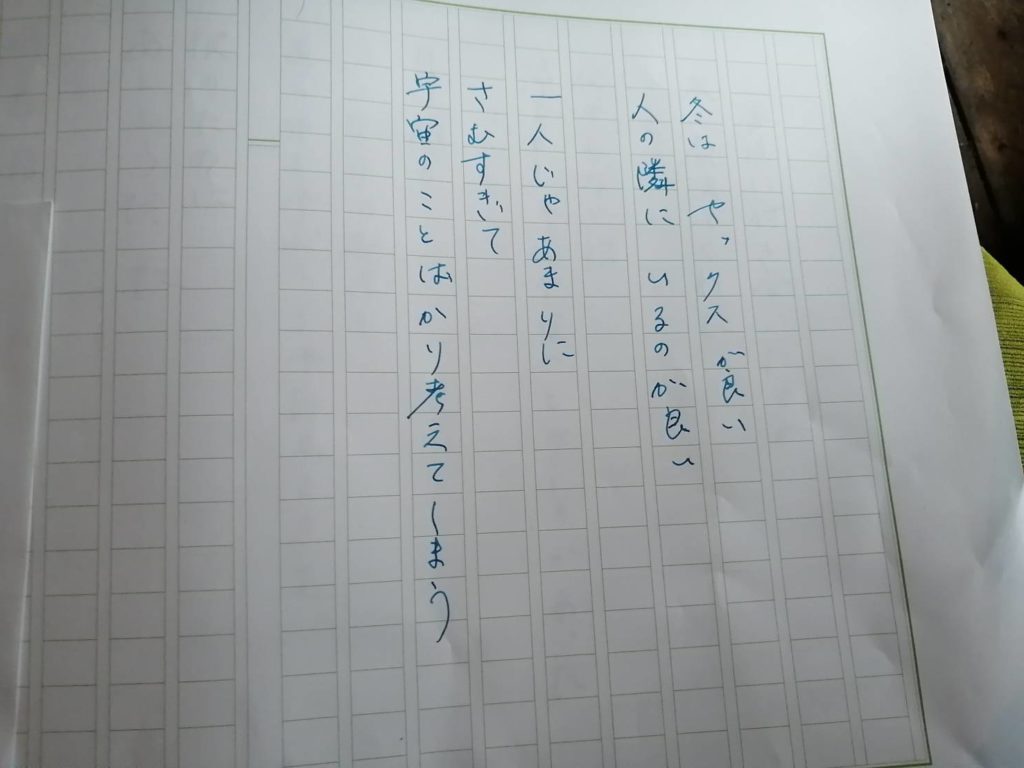 冬は セックスが良い
人の隣に いるのが良い
一人じゃ あまりに
さむすぎて
宇宙のことばかり考えてしまう